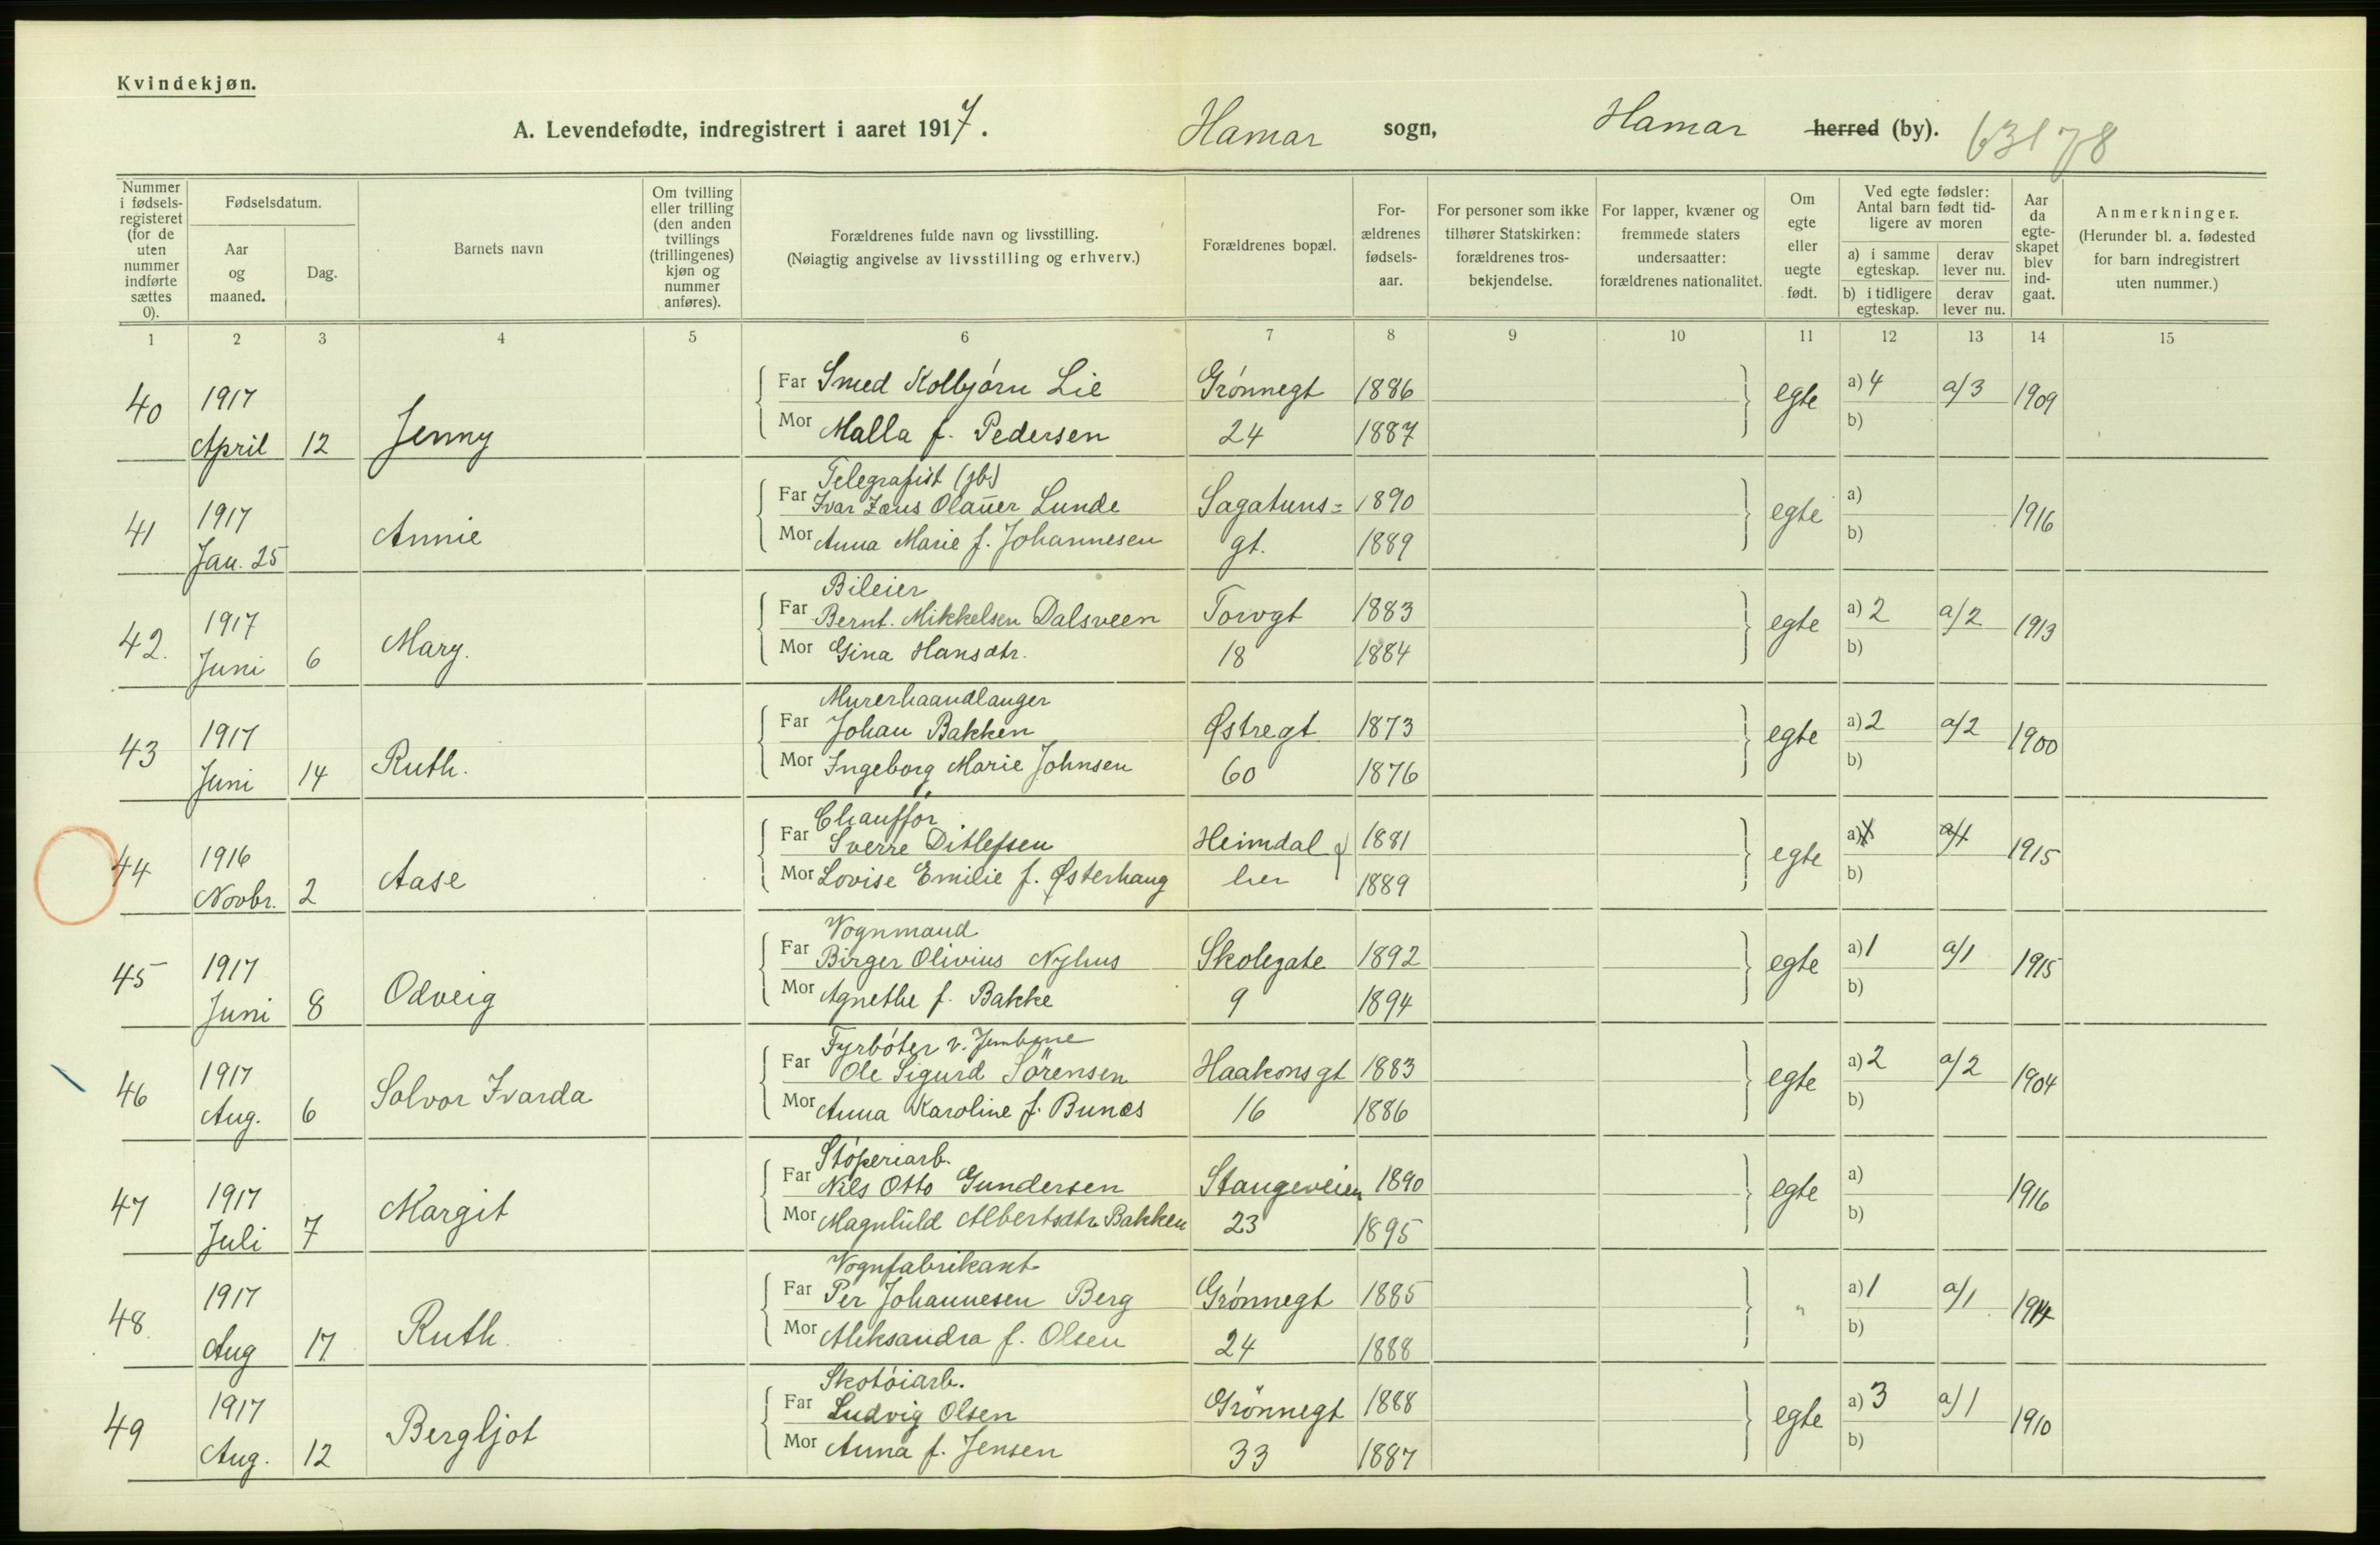 Kvindekjøn.
A. Levendefødte, indregistrert i aaret 1917. Hamar sogn, Hamar herred (by). 63178
Nummer i fødselsregisteret (for de uten nummer indførte sættes 0).
Fødselsdatum.
Aar og maaned.
Dag.
Barnets navn
Om tvilling eller trilling (den anden tvillings (trillingenes) kjøn og nummer anføres).
Forældrenes fulde navn og livsstilling.
(Nøiagtig angivelse av livsstilling og erhverv.)
Forældrenes bopæl.
Forældrenes fødselsaar.
For personer som ikke tilhører Statskirken: forældrenes trosbekjendelse.
For lapper, kvæner og fremmede staters undersaatter: forældrenes nationalitet.
Om egte eller uegte født.
Ved egte fødsler: Antal barn født tidligere av moren
a) i samme egteskap.
derav lever nu.
b) i tidligere egteskap.
derav lever nu.
Aar da egteskapet blev indgaat.
Anmerkninger.
(Herunder bl. a. fødested for barn indregistrert uten nummer.)
1 2 3 4 5 6 7 8 9 10 11 12 13 14 15
40 1917 Far Smed Kolbjørn Lie Grønnegt 1886 egte a) 4 a/3 1909
April 12 Jenny Mor Malla f. Pedersen 24 1887 b)
Telegrafist (jb.)
41 1917 Far Ivar Zæus Olauer Lunde Sagatuns= 1890 egte a) 1916
Jan. 25 Annie Mor Anna Marie f. Johannesen gt. 1889 b)
Bileier
42. 1917 Far Bernt. Mikkelsen Dalsveen Torvgt 1883 egte a) 2 a/2 1913
Juni 6 Mary. Mor Gina Hansdtr. 18 1884 b)
Murerhaandlanger
43 1917 Far Johan Bakken Østregt 1873 egte a) 2 a/2 1900
Juni 14 Ruth. Mor Ingeborg Marie Johnsen 60 1876 b)
Chauffør
44 1916 Far Sverre Ditlefsen Heimdal 1881 egte a) 1 a/1 1915
Novbr. 2 Aase Mor Lovise Emilie f. Østerhaug her 1889 b)
Vognmand
45 1917 Far Birger Olivius Nyhus Skolegate 1892 egte a) 1 a/1 1915
Juni 8 Odveig Mor Agnethe f. Bakke 9 1894 b)
Fyrbøter v. Jernbane
46 1917 Far Ole Sigurd Sörensen Haakonsgt 1883 egte a) 2 a/2 1904
Aug. 6 Solvor Ivarda Mor Anna Karoline f. Bunæs 16 1886 b)
Støperiarb.
47 1917 Far Nils Otto Gundersen Stangeveien 1890 egte a) 1916
Juli 7 Margit Mor Magnhild Albertsdtr. Bakken 23 1895 b)
Vognfabrikant
48 1917 Far Per Johannesen Berg Grønnegt 1885 " a) 1 a/1 1914
Aug 17 Ruth. Mor Aleksandra f. Olsen 24 1888 b)
Skotøiarb.
49 1917 Far Ludvig Olsen Grönnegt 1888 egte a) 3 a/1 1910
Aug. 12 Bergljot Mor Anna f. Jensen 33 1887 b)